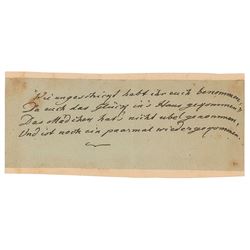 Wie ungeschickt habt ihr euch benommen,
Da euch das Glück in's Haus gekommen?
Das Mädchen hat's nicht übel genommen,
Und ist noch ein paarmal wiedergekommen.